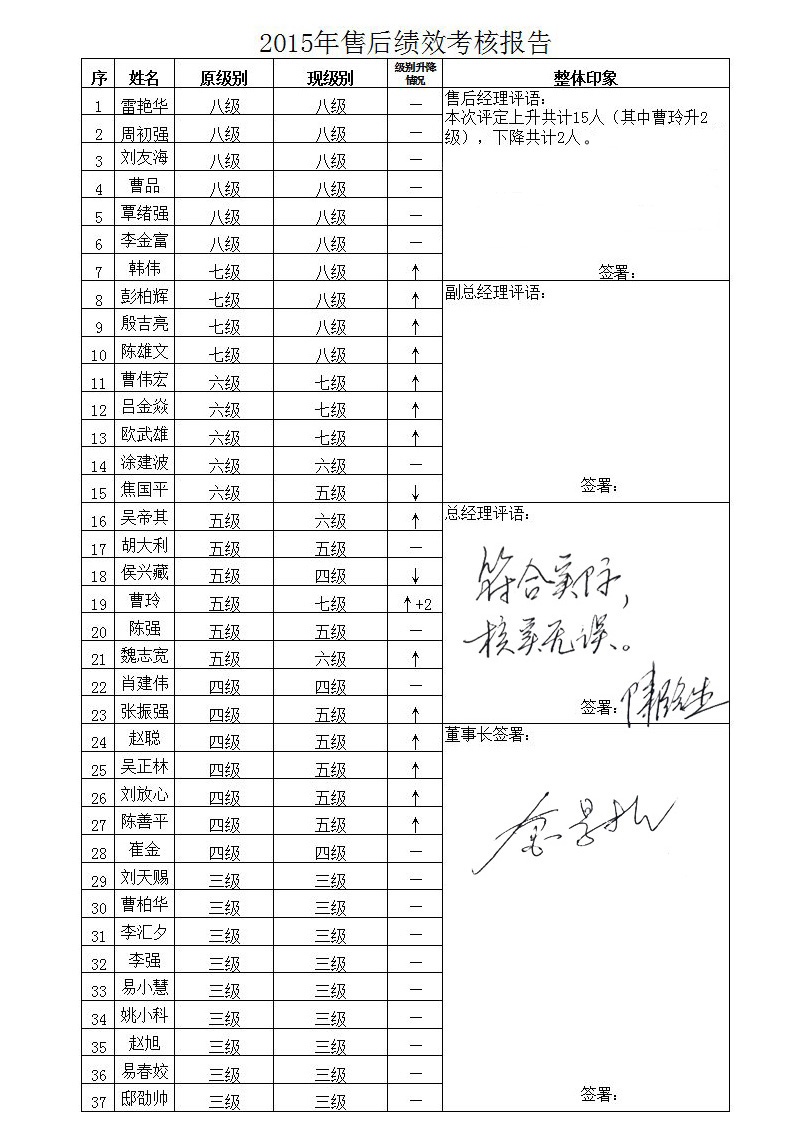 2015年售后绩效考核报告
序 姓名 原级别 现级别 级别升降情况 整体印象
1 雷艳华 八级 八级 —
2 周初强 八级 八级 —
3 刘友海 八级 八级 —
4 曹品 八级 八级 —
5 覃绪强 八级 八级 —
6 李金富 八级 八级 —
7 韩伟 七级 八级 ↑
8 彭柏辉 七级 八级 ↑
9 殷吉亮 七级 八级 ↑
10 陈雄文 七级 八级 ↑
11 曹伟宏 六级 七级 ↑
12 吕金焱 六级 七级 ↑
13 欧武雄 六级 七级 ↑
14 涂建波 六级 六级 —
15 焦国平 六级 五级 ↓
16 吴帝其 五级 六级 ↑
17 胡大利 五级 五级 —
18 侯兴藏 五级 四级 ↓
19 曹玲 五级 七级 ↑+2
20 陈强 五级 五级 —
21 魏志宽 五级 六级 ↑
22 肖建伟 四级 四级 —
23 张振强 四级 五级 ↑
24 赵聪 四级 五级 ↑
25 吴正林 四级 五级 ↑
26 刘放心 四级 五级 ↑
27 陈善平 四级 五级 ↑
28 崔金 四级 四级 —
29 刘天赐 三级 三级 —
30 曹柏华 三级 三级 —
31 李汇夕 三级 三级 —
32 李强 三级 三级 —
33 易小慧 三级 三级 —
34 姚小科 三级 三级 —
35 赵旭 三级 三级 —
36 易春姣 三级 三级 —
37 邸劭帅 三级 三级 —
售后经理评语：
本次评定上升共计15人（其中曹玲升2
级），下降共计2人。
签署：
副总经理评语：
签署：
总经理评语：
符合实际，
核实无误。
签署：
董事长签署：
签署：